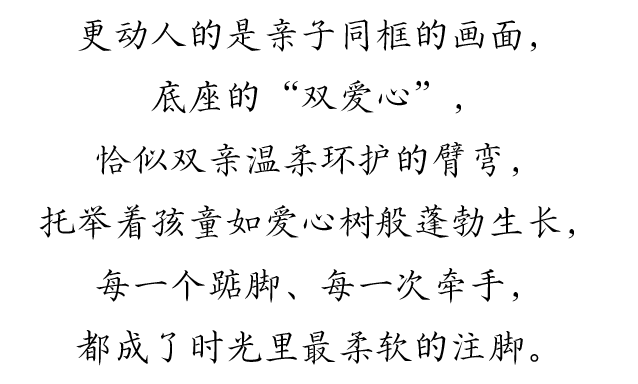 更动人的是亲子同框的画面，
底座的“双爱心”，
恰似双亲温柔环护的臂弯，
托举着孩童如爱心树般蓬勃生长，
每一个踮脚、每一次牵手，
都成了时光里最柔软的注脚。